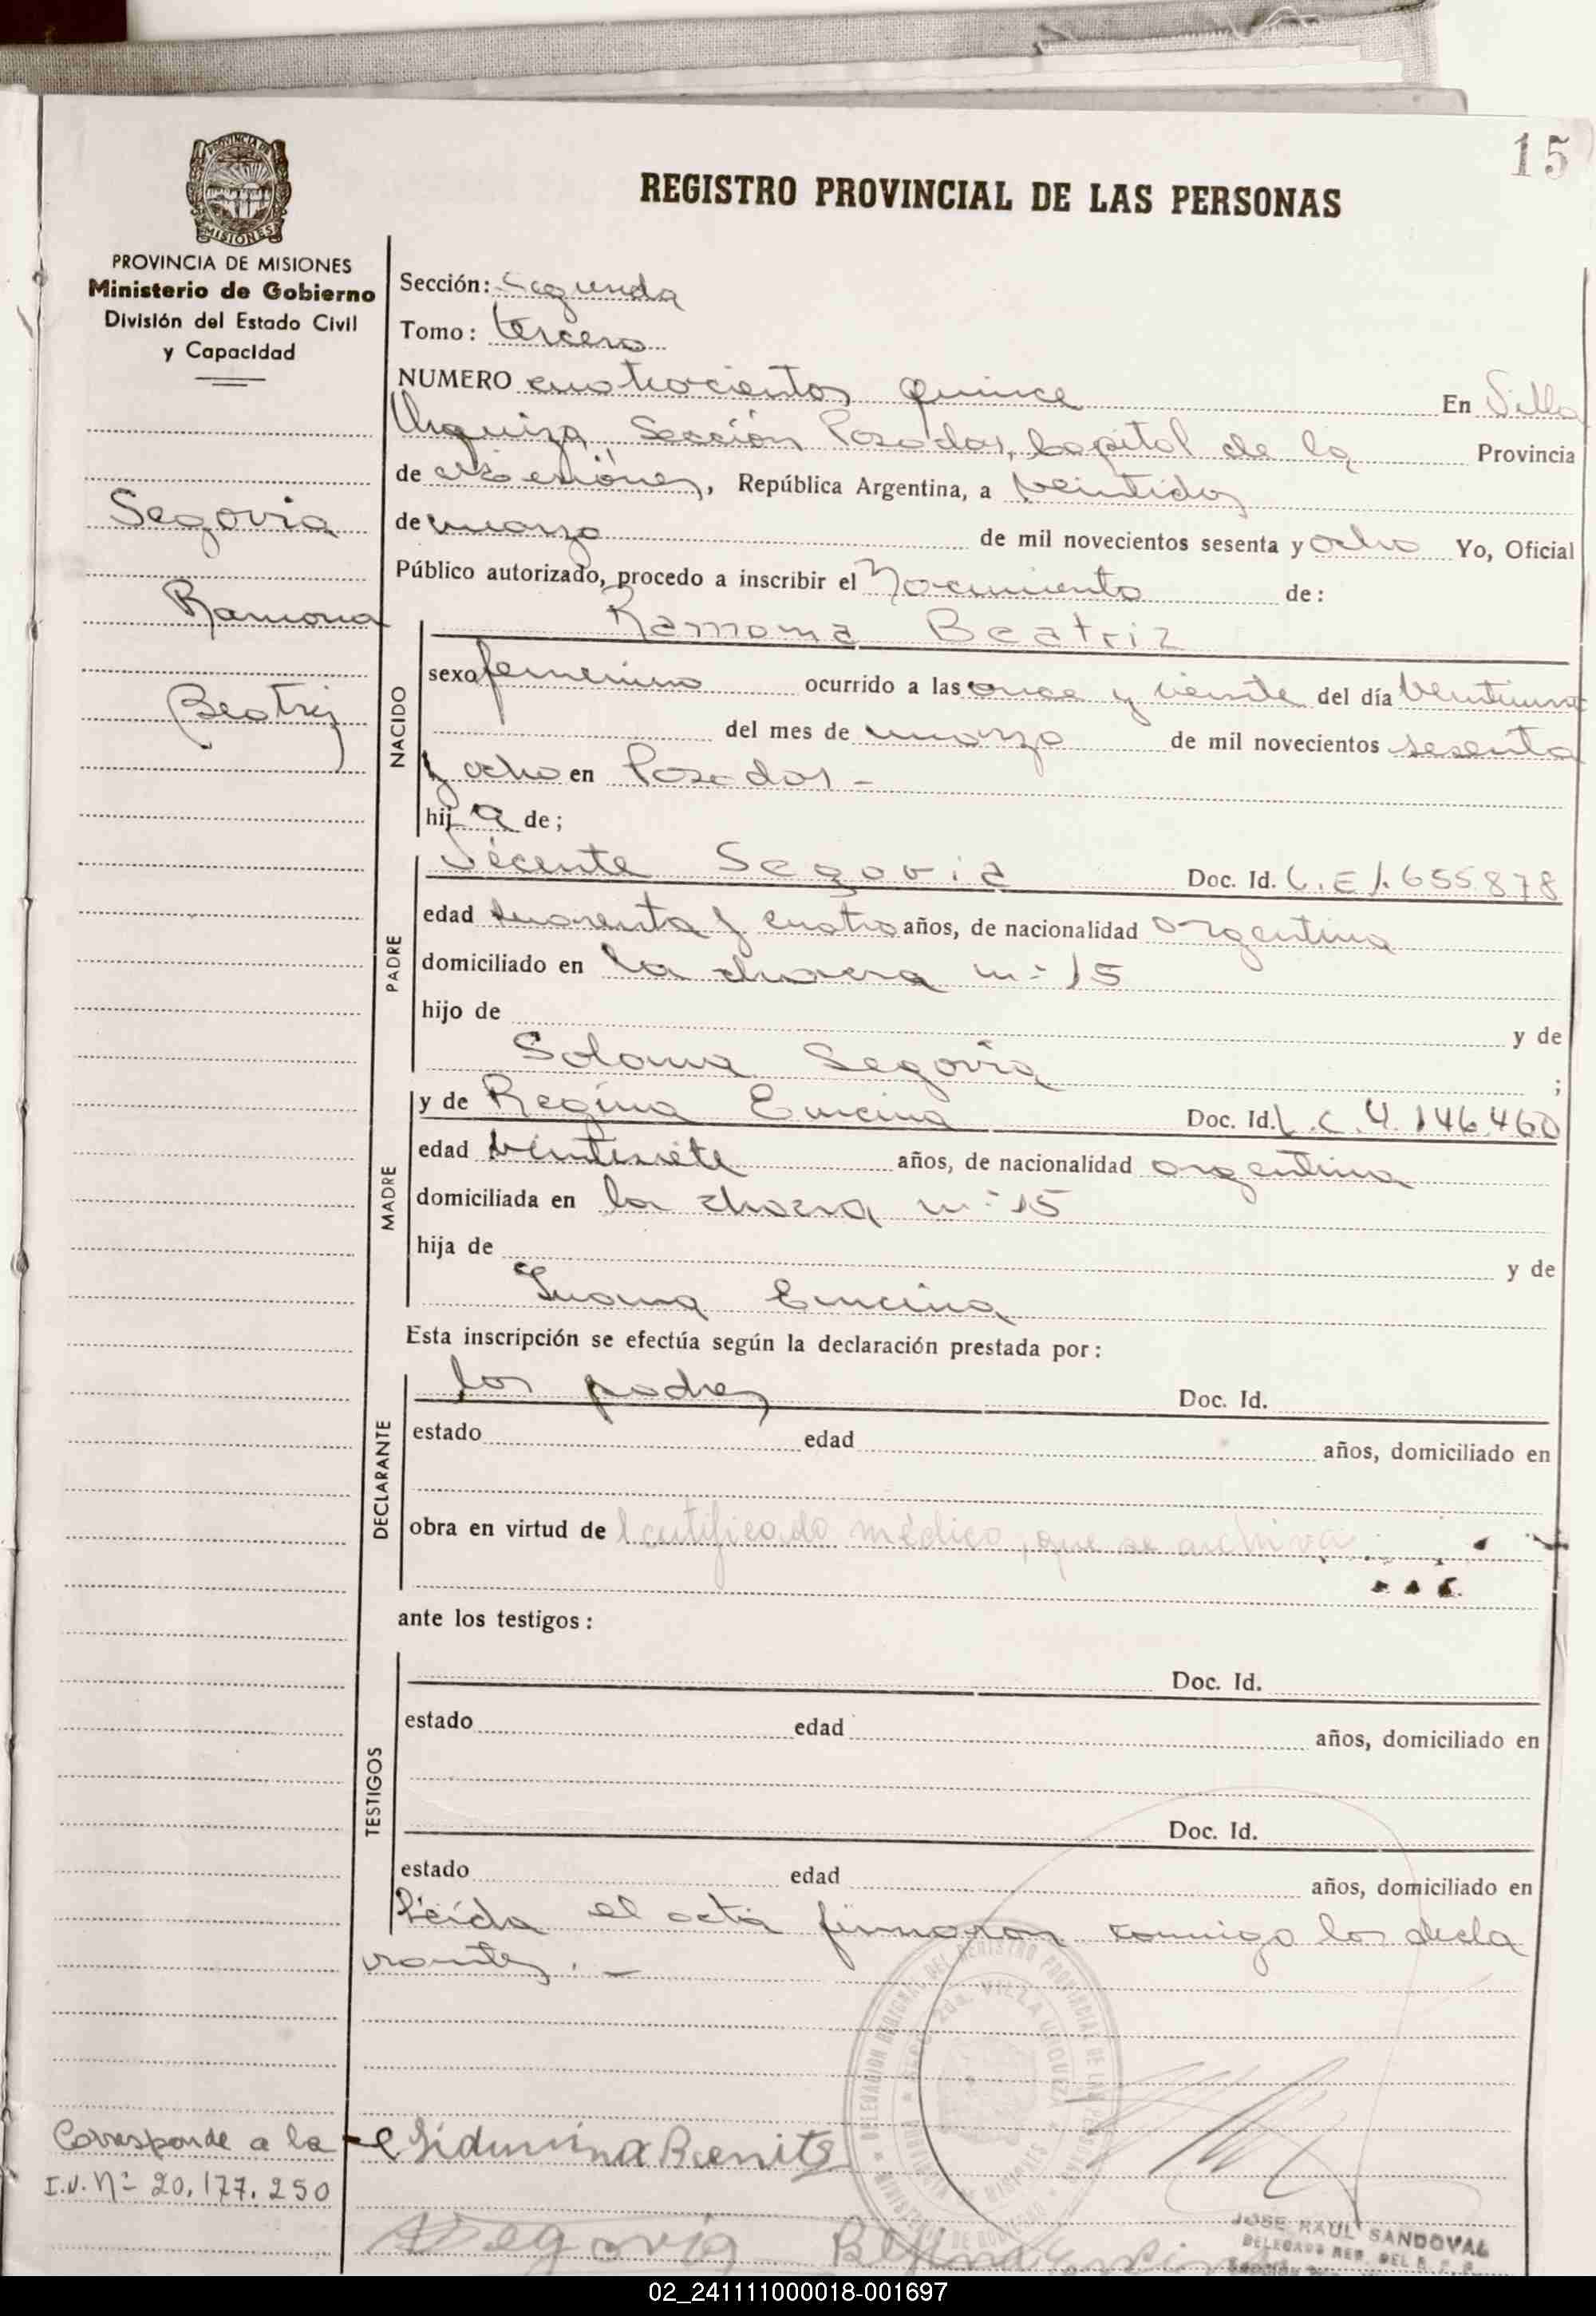 15
REGISTRO PROVINCIAL DE LAS PERSONAS
PROVINCIA DE MISIONES
Ministerio de Gobierno
División del Estado Civil
y Capacidad
Segovia
Ramona
Beatriz
Sección: Segunda
Tomo: tercero
NUMERO cuatrocientos quince En Villa
Urquiza Sección Posadas, Capital de la Provincia
de Misiones, República Argentina, a veintidos
de marzo de mil novecientos sesenta y ocho Yo, Oficial
Público autorizado, procedo a inscribir el Nacimiento de:
Ramona Beatriz
NACIDO
sexo femenino ocurrido a las once y veinte del día veintiuno
del mes de marzo de mil novecientos sesenta
y ocho en Posadas -
hija de;
PADRE
Vicente Segovia Doc. Id. L.E 1.655878
edad cuarenta y cuatro años, de nacionalidad argentina
domiciliado en la chacra n= 15
hijo de y de
Segovia ;
MADRE
y de Regina Encina Doc. Id. L.C.4.146.460
edad veintisiete años, de nacionalidad argentina
domiciliada en la chacra n= 15
hija de y de
Juana Encina
Esta inscripción se efectúa según la declaración prestada por:
DECLARANTE
los padres Doc. Id.
estado edad años, domiciliado en
obra en virtud de l certificado médico, que se archiva
ante los testigos:
TESTIGOS
Doc. Id.
estado edad años, domiciliado en
Doc. Id.
estado edad años, domiciliado en
Leída el acta firmaron conmigo los decla
rantes. -
Corresponde a la
I.N. Nº 20.177.250
Segovia
JOSE RAUL SANDOVAL
DELEGADO REG. DEL R. P. P.
02_241111000018-001697